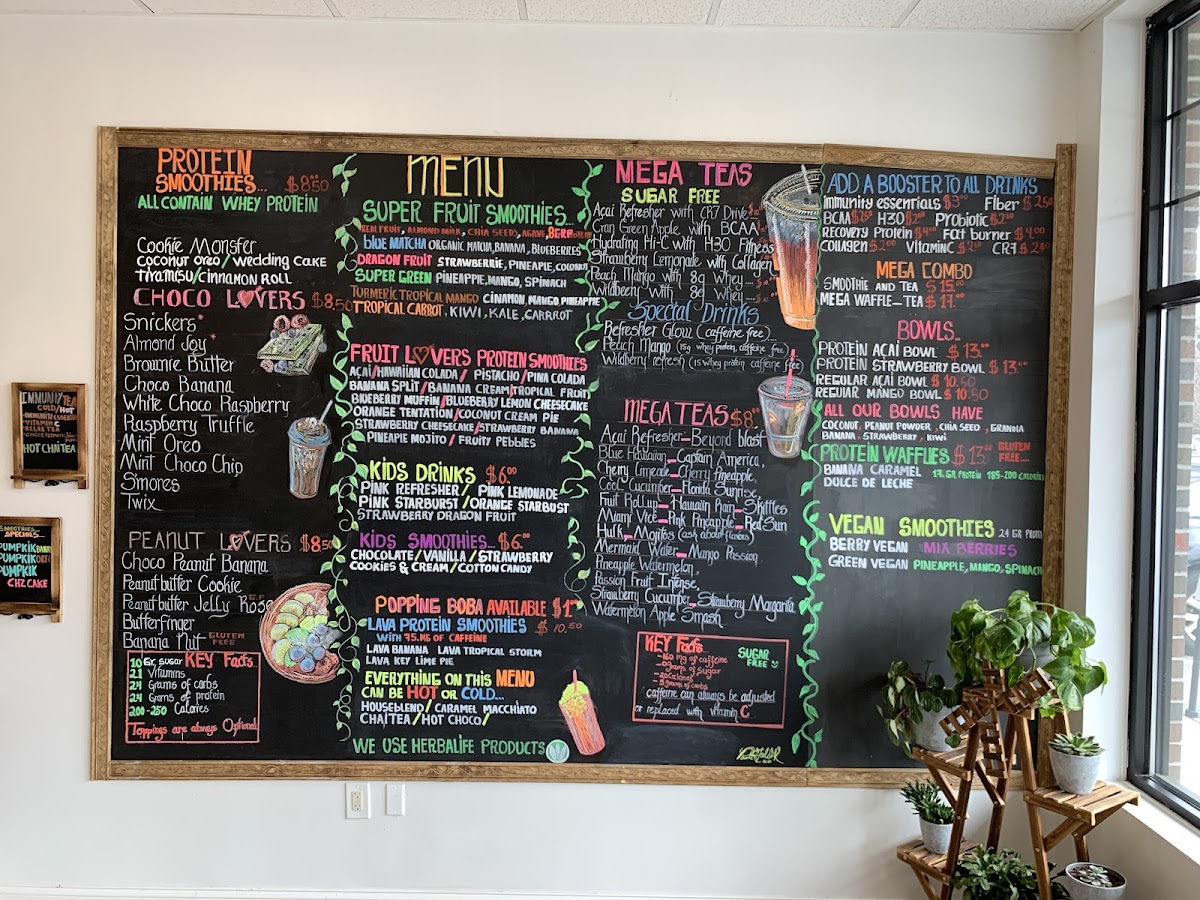 IMMUNITY TEA
COLD/HOT
VITAMIN C
RELAX TEA
HOT CHAI TEA
SMOOTHIES
SPECIALS...
PUMPKIN
PUMPKIN
PUMPKIN
CHZ CAKE
PROTEIN
SMOOTHIES... $8.50
ALL CONTAIN WHEY PROTEIN
Cookie Monster
coconut oreo/wedding CAKE
TIRAMISU/CINNAMON ROLL
CHOCO LOVERS $8.50
Snickers*
Almond Joy*
Brownie Butter
Choco Banana
White Choco Raspberry
Raspberry Truffle
Mint Oreo
Mint Choco Chip
S'mores
Twix
PEANUT LOVERS $8.50
Choco Peanut Banana
Peanutbutter Cookie
Peanutbutter Jelly Rose
Butterfinger
Banana Nut GLUTEN FREE
10 Gr. sugar KEY Facts
21 Vitamins
24 Grams of carbs
24 Grams of protein
200-250 Calories
Toppings are always Optional
MENU
SUPER FRUIT SMOOTHIES...
REAL FRUIT, ALMOND MILK, CHIA SEEDS, AGAVE,
BLUE MATCHA ORGANIC MATCHA, BANANA, BLUEBERRIES
DRAGON FRUIT STRAWBERRIE, PINEAPLE, COCONUT
SUPER GREEN PINEAPPLE, MANGO, SPINACH
TURMERIC TROPICAL MANGO CINAMON, MANGO, PINEAPPLE
TROPICAL CARROT, KIWI, KALE, CARRROT
FRUIT LOVERS PROTEIN SMOOTHIES
AÇAI/HAWAIIAN COLADA/ PISTACHO/PINA COLADA
BANANA SPLIT/BANANA CREAM/TROPICAL FRUIT
BLUEBERRY MUFFIN/BLUEBERRY LEMON CHEESECAKE
ORANGE TENTATION/COCONUT CREAM PIE
STRAWBERRY CHEESECAKE/STRAWBERRY BANANA
PINEAPLE MOJITO/ FRUITY PEBBLES
KIDS DRINKS $6.00
PINK REFRESHER/ PINK LEMONADE
PINK STARBURST/ORANGE STARBUST
STRAWBERRY DRAGON FRUIT
KIDS SMOOTHIES... $6.00
CHOCOLATE/VANILLA/STRAWBERRY
COOKIES & CREAM/COTTON CANDY
POPPING BOBA AVAILABLE $1
LAVA PROTEIN SMOOTHIES $10.50
WITH 75 MG OF CAFFEINE
LAVA BANANA LAVA TROPICAL STORM
LAVA KEY LIME PIE
EVERYTHING ON THIS MENU
CAN BE HOT OR COLD...
HOUSEBLEND/ CARAMEL MACCHIATO
CHAI TEA/HOT CHOCO/
WE USE HERBALIFE PRODUCTS
MEGA TEAS
SUGAR FREE
Açai Refresher with CR7 Drive
Cran Green Apple with BCAA
Hydrating Hi-C with H3O Fitness
Strawberry Lemonade with Collagen
Peach Mango with 8g Whey....
Wildberry with 8g whey....
Special Drinks
Refresher Glow (caffeine free)...
Peach Mango (15g whey protein, caffeine free
Wildberry refresh (15 whey protein, caffeine free
MEGA TEAS $8
Açai Refresher-Beyond blast
Blue Hawaiian-Captain America,
Cherry Limeade-Cherry Pineapple,
Cool Cucumber-Florida Sunrise,
Fruit Rollup-Hawaiian Rain-Skittles
Miami Vice-Pink Pineapple-Red Sun
Hulk-Mojitos (ask about flavors)
Mermaid Water-Mango Passion
Pineapple Watermelon,
Passion Fruit Intense,
Strawberry Cucumber-Strawberry Margarita
Watermelon Apple Smash
KEY Facts
-160 mg of caffeine
-0 grams of sugar
SUGAR FREE
caffeine can always be adjusted
or replaced with vitamin C
ADD A BOOSTER TO ALL DRINKS
immunity essentials $3.00 Fiber $2.50
BCAA $2.50 H3O $2.00 Probiotic $2.00
RECOVERY Protein $4.00 Fat burner $4.00
Collagen $2.00 Vitamin C $2.00 CR7 $2.50
MEGA COMBO
SMOOTHIE AND TEA $15.00
MEGA WAFFLE-TEA $17.00
BOWLS...
PROTEIN AÇAI BOWL $13.00
PROTEIN STRAWBERRY BOWL $13.00
REGULAR AÇAI BOWL $10.50
REGULAR MANGO BOWL $10.50
ALL OUR BOWLS HAVE
COCONUT, PEANUT POWDER, CHIA SEED, GRANOLA
BANANA, STRAWBERRY, KIWI
PROTEIN WAFFLES $13.00 GLUTEN FREE...
BANANA CARAMEL 17 GR PROTEIN 185-200 CALORIES
DULCE DE LECHE
VEGAN SMOOTHIES 24 GR PROTEI
BERRY VEGAN MIX BERRIES
GREEN VEGAN PINEAPPLE, MANGO, SPINACH